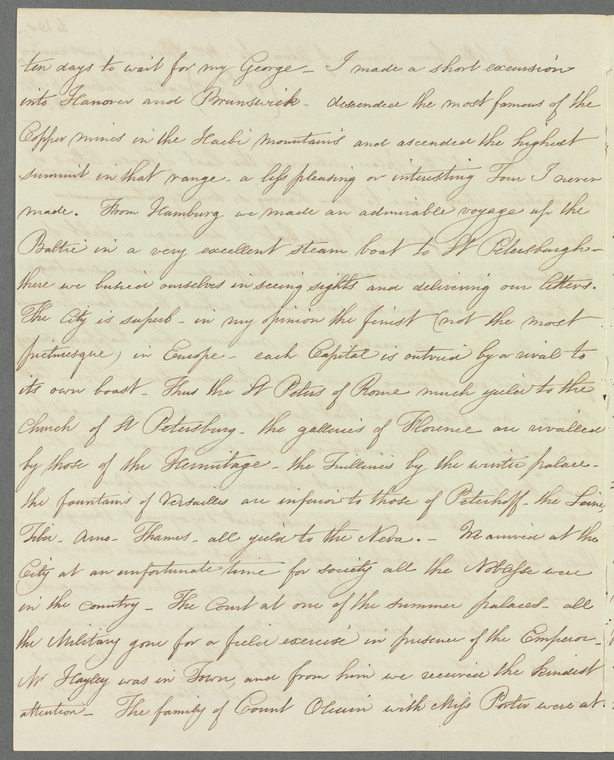 ten days to wait for my George – I made a short excursion
into Hanover and Brunswick – descended the most famous of the
Copper mines in the mountains and ascended the highest
summit in that range – a less pleasing or interesting Tour I never
made. From Hamburg we made an admirable voyage up the
Baltic in a very excellent steam boat to St Petersburgh –
there we busied ourselves in seeing sights and delivering our letters.
The City is superb – in my opinion the finest (not the most
picturesque) in Europe – each Capital is outvied by a rival to
its own boast – Thus the St Peters of Rome much yields to the
Church of St Petersburg – the galleries of Florence are rivalled
by those of the Hermitage – the Tuilleries by the winter palace –
the fountains of Versailles are inferior to those of Peterhoff – the Seine
Tiber – Arno – Thames – all yield to the Neva. – We arrived at the
City at an unfortunate time for society all the Noblesse were
in the country – The Court at one of the summer palaces – all
the Military gone for a field exercise in presence of the Emperor –
Mr Hayley was in Town, and from him we received the kindest
attention – The family of Count with Miss Porter were at